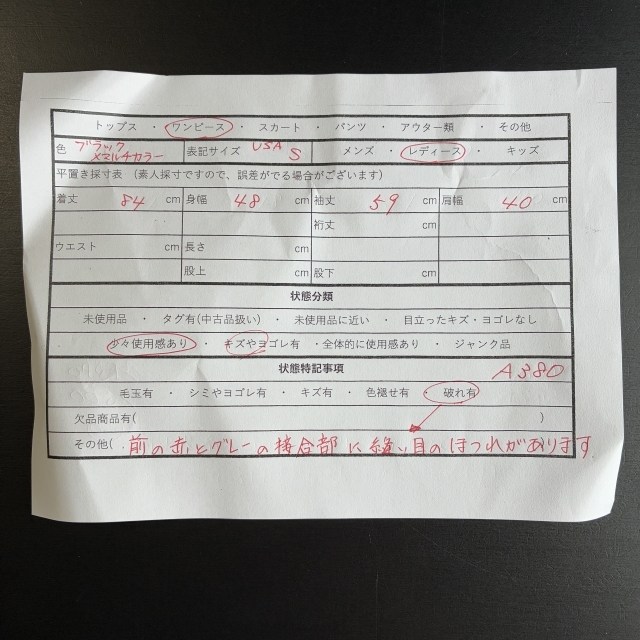 トップス ・ ワンピース ・ スカート ・ パンツ ・ アウター類 ・ その他
色 ブラック×マルチカラー 表記サイズ USA S メンズ ・ レディース ・ キッズ
平置き採寸表 (素人採寸ですので、誤差がでる場合がございます)
着丈 84 cm 身幅 48 cm 袖丈 59 cm 肩幅 40 cm
裄丈 cm
ウエスト cm 長さ cm
股上 cm 股下 cm
状態分類
未使用品 ・ タグ有(中古品扱い) ・ 未使用品に近い ・ 目立ったキズ・ヨゴレなし
少々使用感あり ・ キズやヨゴレ有 ・全体的に使用感あり ・ ジャンク品
状態特記事項 A380
毛玉有 ・ シミやヨゴレ有 ・ キズ有 ・ 色褪せ有 ・ 破れ有
欠品商品有( )
その他( 前の赤とグレーの接合部に縫い目のほつれがあります